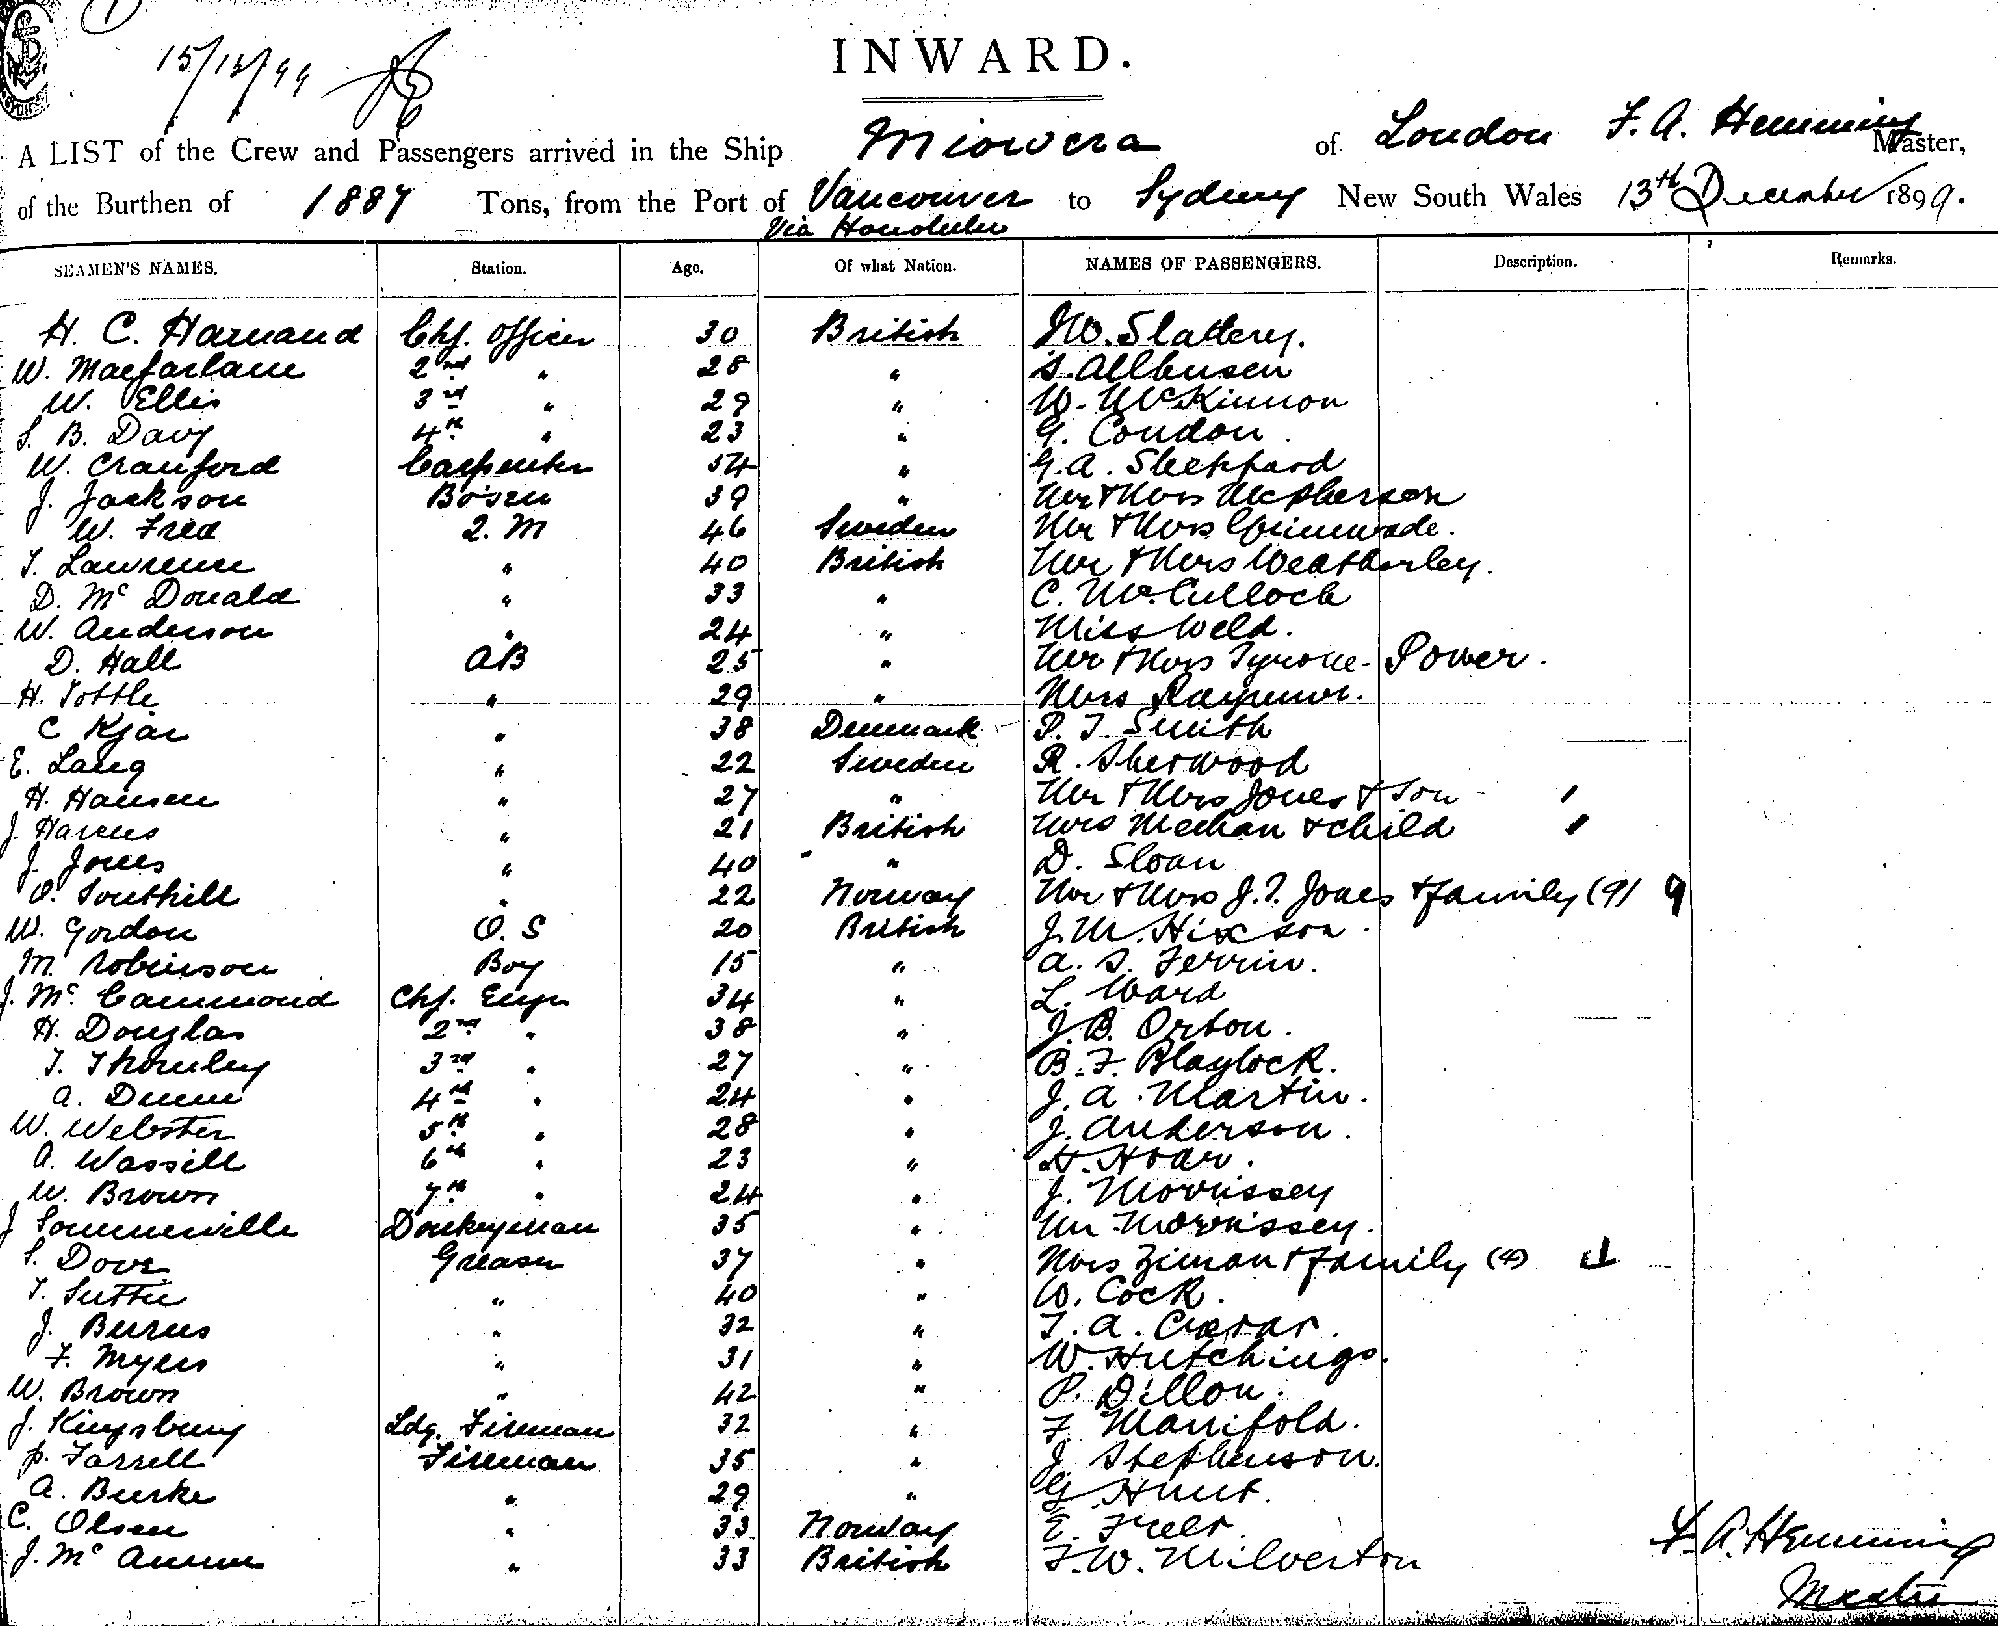 15/12/99
INWARD.
A LIST of the Crew and Passengers arrived in the Ship Miowera of London F. A. Hemming Master,
of the Burthen of 1887 Tons, from the Port of Vancouver to Sydney New South Wales 13th December 1899.
Via Honolulu
SEAMEN'S NAMES. Station. Age. Of what Nation. NAMES OF PASSENGERS. Description. Remarks.
H. C. Harnaud Chf. Officer 30 British Slattery.
W. Macfarlane 2nd " 28 " S. Allhusen
W. Ellis 3rd " 29 " W. McKinnon
S. B. Davy 4th " 23 " G. Condon.
W. Cranford Carpenter 54 " G. A. Sheppard
J. Jackson Bosen 39 " Mr & Mrs McPherson
W. Fred Q. M 46 Sweden Mr & Mrs Grimwade.
T. Lawrence " 40 British Mr & Mrs Weatherley.
D. Mc Donald " 33 " C. McCulloch
W. Anderson " 24 " Miss Weld.
D. Hall AB 25 " Mr & Mrs Tyrone- Power.
H. Tottle " 29 " Mrs Raynmor.
C Kjar " 38 Denmark P. T. Smith
E. Lang " 22 Sweden R. Sherwood
H. Hansen " 27 " Mr & Mrs Jones & Son
J Harcus " 21 British Mrs Meehan & child
J. Jones " 40 " D. Sloan
O. Southill " 22 Norway Mr & Mrs J. T. Jones & family (9) 9
W. Gordon O. S 20 British J. M. Hixson.
M. Robinson Boy 15 " A. S. Ferrin.
J. Mc Cammond Chf. Engr 34 " L. Ward
H. Douglas 2nd " 38 " J. B. Orton.
T. Thornley 3rd " 27 " B. F. Blaylock.
A. Dunn 4th " 24 " J. A. Martin.
W. Webster 5th " 28 " J. Anderson.
A. Wassill 6th " 23 " H. Hoar.
W. Brown 7th " 24 " J. Morrissey
J Sommerville Donkeyman 35 " Mr. Morrissey.
S. Dove Greaser 37 " Mrs Ziman & family (4) 4
T. Suttie " 40 " W. Cock.
J. Burns " 32 " T. A. Caesar.
F. Myers " 31 " W. Hutchings.
W. Brown " 42 " P. Dillon.
J. Kingsbury Ldg. Fireman 32 " F. Manifold.
P. Farrell Fireman 35 " J Stephenson.
A. Burke " 29 " G Hunt.
C. Olsen " 33 Norway E.
J. Mc " 33 British F. W. Milverton
F. A. Hemming
Master